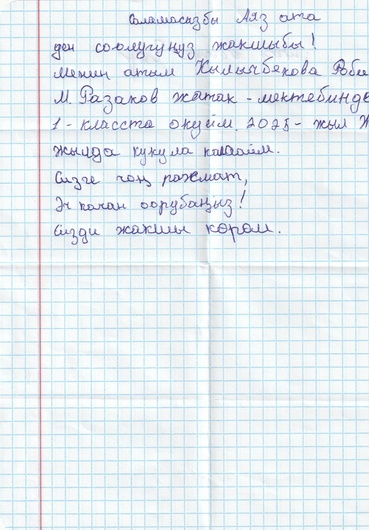 Саламасызбы Аяз ата
ден соолугуңуз жакшыбы!
менин атым Кылычбекова Роби
М. Разаков жатак - мектебинде
1 - класста окуйм. 2028 - жыл Ж
жылда кукула каалайм.
Сизге чоң рахмат,
Эч качан оорубаңыз!
Сизди жакшы көрөм.